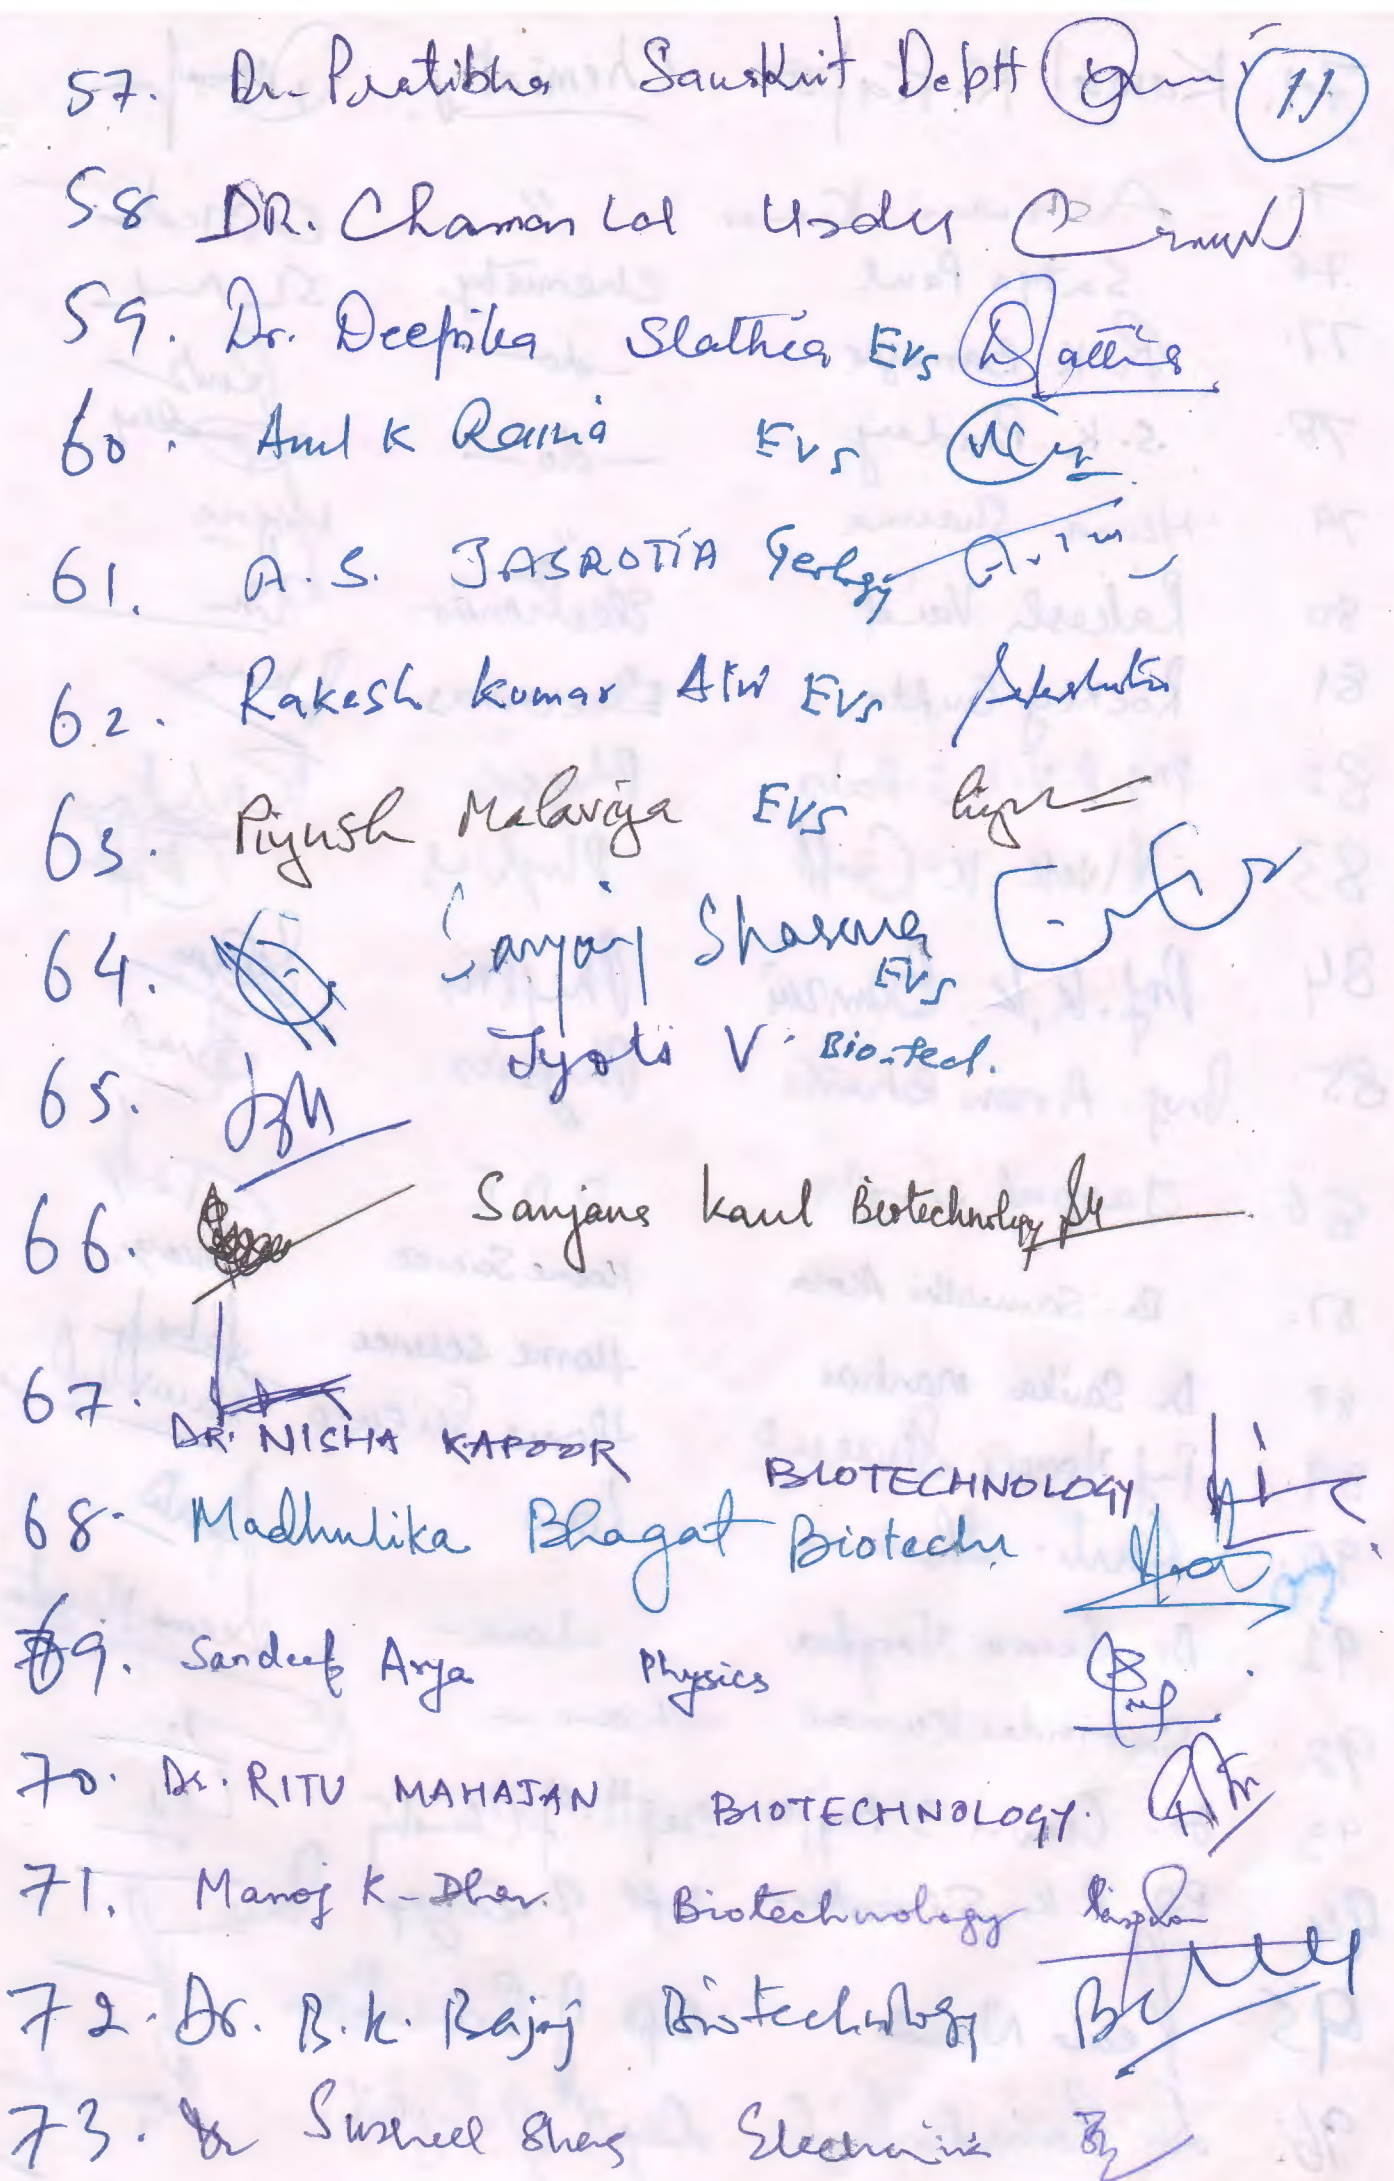 57. Dr. Pratibha Sanskrit Deptt 11
58 DR. Chaman Lal Urdu
59. Dr. Deepika Slathia EVS
60. Anil K Raina EVS
61. A. S. JASROTIA Geology
62. Rakesh Kumar Atri EVS
63. Piyush Malaviya EVS
64. Sanjay Sharma
EVS
65. Jyoti V. Bio-tech.
66. Sanjana Kaul Biotechnology
67.
DR. NISHA KAPOOR BIOTECHNOLOGY
68. Madhulika Bhagat Biotech
69. Sandeep Arya Physics
70. Dr. RITU MAHAJAN BIOTECHNOLOGY.
71. Manoj K. Dhar. Biotechnology
72. Dr. B. K. Bajaj Biotechnology
73. Susheel Electronics